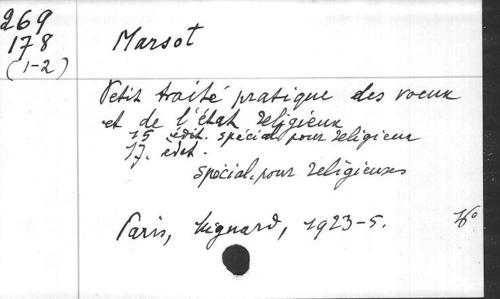 269
178
(1-2)
Marsot
Petit traité pratique des voeux
et de l'état religieux
15 édit. spécial. pour religieux
17. édit.
spécial. pour religieuses
Paris, Vignard, 1923-5.
16°